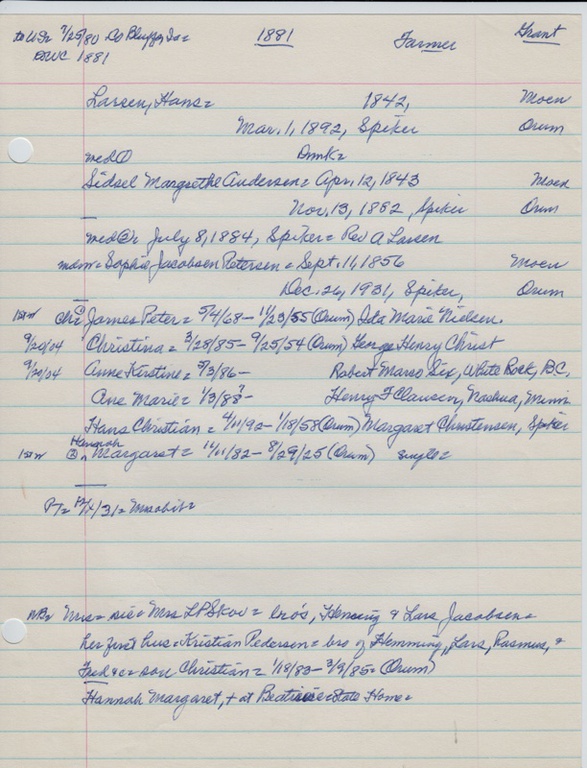 to US= 7/25/80 Co Bluffs, Ia= 1881 Farmer Grant
DWC 1881
Larsen, Hans= 1842, Moen
Mar. 1, 1892, Spiker Orum
med① Dmk=
Sidsel Margrethe Andersen= Apr. 12, 1843 Moen
Nov. 13, 1882, Spiker Orum
med②= July 8, 1884, Spiker= Rev A Larsen
mdn= Sophie Jacobsen Petersen= Sept. 11, 1856 Moen
Dec. 26, 1931, Spiker, Orum
1st m Chi① James Peter= 5/4/68- 11/23/55 (Orum) Ida Marie Nielsen.
9/20/04 Christina= 3/28/85- 9/25/54 (Orum) George Henry Christ
9/20/04 Anne Kirstine= 5/3/86- Robert Marro Six, White Rock, B.C.
Ane Marie= 1/3/88?- Henry F Clausen, Nashua, Minn
Hans Christian= 4/11/92- 1/18/58 (Orum) Margaret Christensen, Spiker
Hannah
1st m ② Margaret= 11/11/82- 8/29/25 (Orum) single=
P/= 12/14/31= Mrsobit=
NB= Mrs= sis= Mrs L P Skov= bro's, Henning & Lars Jacobsen=
her first hus= Kristian Pedersen= bro of Hemming, Lars, Rasmus, &
Fred &c= son Christian= 1/18/83- 3/9/85= (Orum)
Hannah Margaret, + at Beatrice State Home=